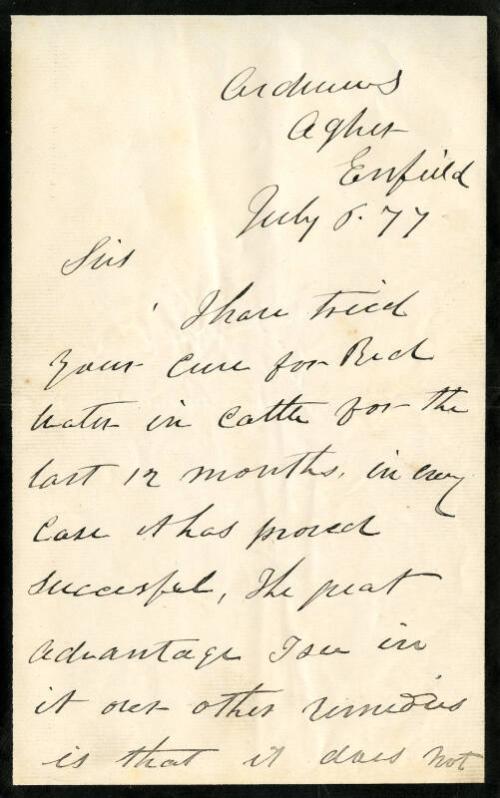 Ardrums
Agher
Enfield
July 6. 77
Sir
I have tried
your cure for Red
Water in Cattle for the
last 12 months, in every
Case it has proved
succesful, The great
advantage I see in
it over other remedies
is that it does not